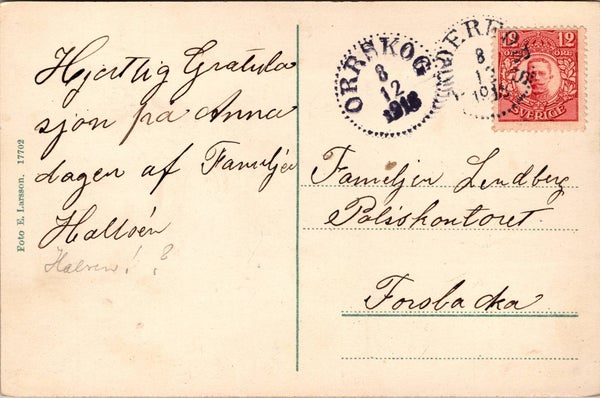 Hjertlig Gratula
sjon på Anna
dagen af Familjen
Hallvén
Halvén! ?
Foto E. Larsson. 17702
ORRSKOG
8
12
1916
12
ÖRE
SVERIGE
8
12
Familjen Lindberg
Poliskontoret
Forsbacka